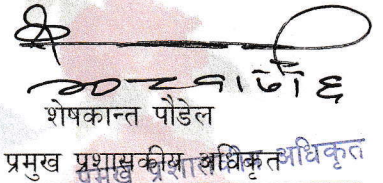 शेषकान्त पौडेल
प्रमुख प्रशासकीय अधिकृत
प्रमुख प्रशासकीय अधिकृत